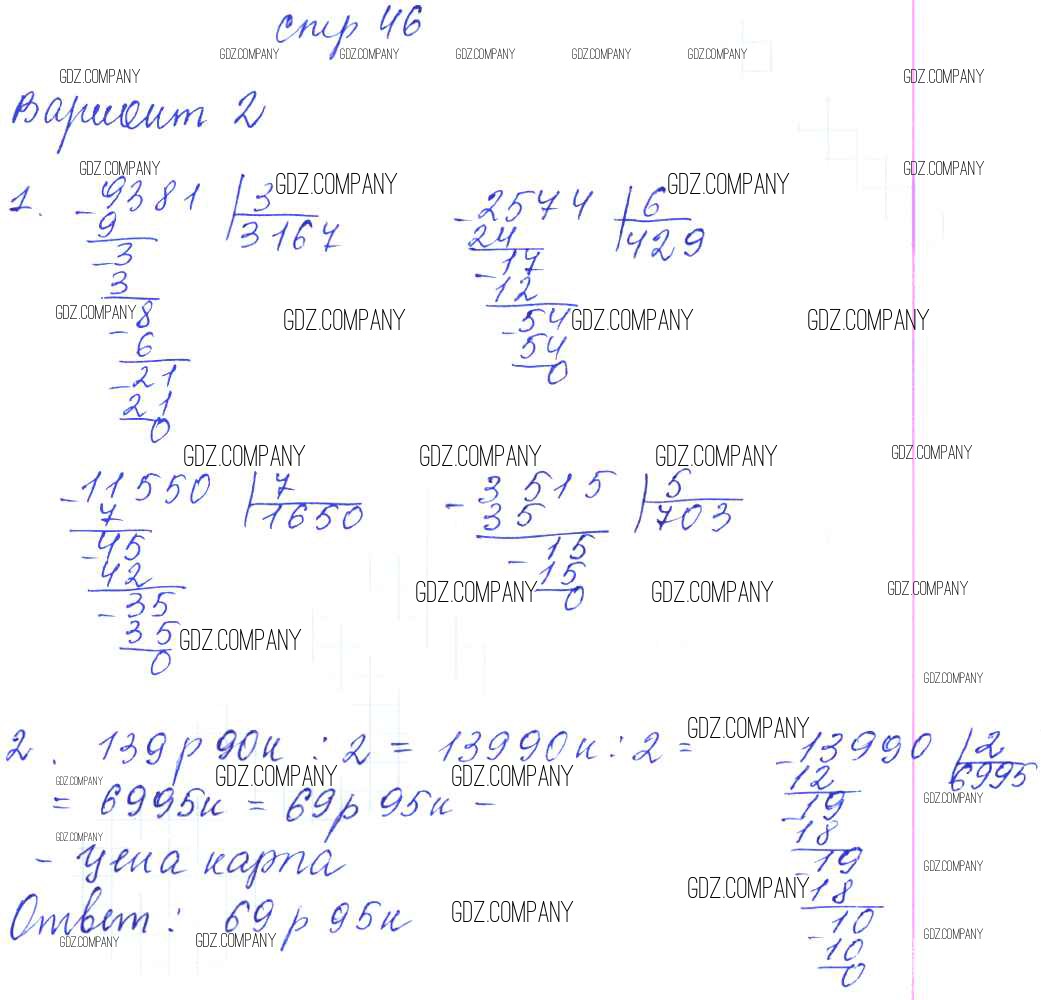 стр 46
GDZ.COMPANY GDZ.COMPANY GDZ.COMPANY GDZ.COMPANY GDZ.COMPANY
GDZ.COMPANY GDZ.COMPANY
Вариант 2
GDZ.COMPANY GDZ.COMPANY
GDZ.COMPANY GDZ.COMPANY
1. - 9381 | 3 - 2574 | 6
9 3167 24 429
- 3 - 17
3 12
GDZ.COMPANY GDZ.COMPANY GDZ.COMPANY GDZ.COMPANY
- 8 - 54
6 54
- 21 0
21
0
GDZ.COMPANY GDZ.COMPANY GDZ.COMPANY GDZ.COMPANY
- 11550 | 7 - 3515 | 5
7 1650 35 703
- 45 - 15
42 15
GDZ.COMPANY GDZ.COMPANY GDZ.COMPANY
- 35 0
35 GDZ.COMPANY
0
GDZ.COMPANY
GDZ.COMPANY
2. 139 р 90 к : 2 = 13990 к : 2 = - 13990 | 2
GDZ.COMPANY GDZ.COMPANY GDZ.COMPANY
= 6995 к = 69 р 95 к - 12 6995
GDZ.COMPANY
- 19
GDZ.COMPANY
18
- цена карпа - 19
GDZ.COMPANY
GDZ.COMPANY
18
Ответ: 69 р 95 к - 10
GDZ.COMPANY GDZ.COMPANY
GDZ.COMPANY GDZ.COMPANY
10
0